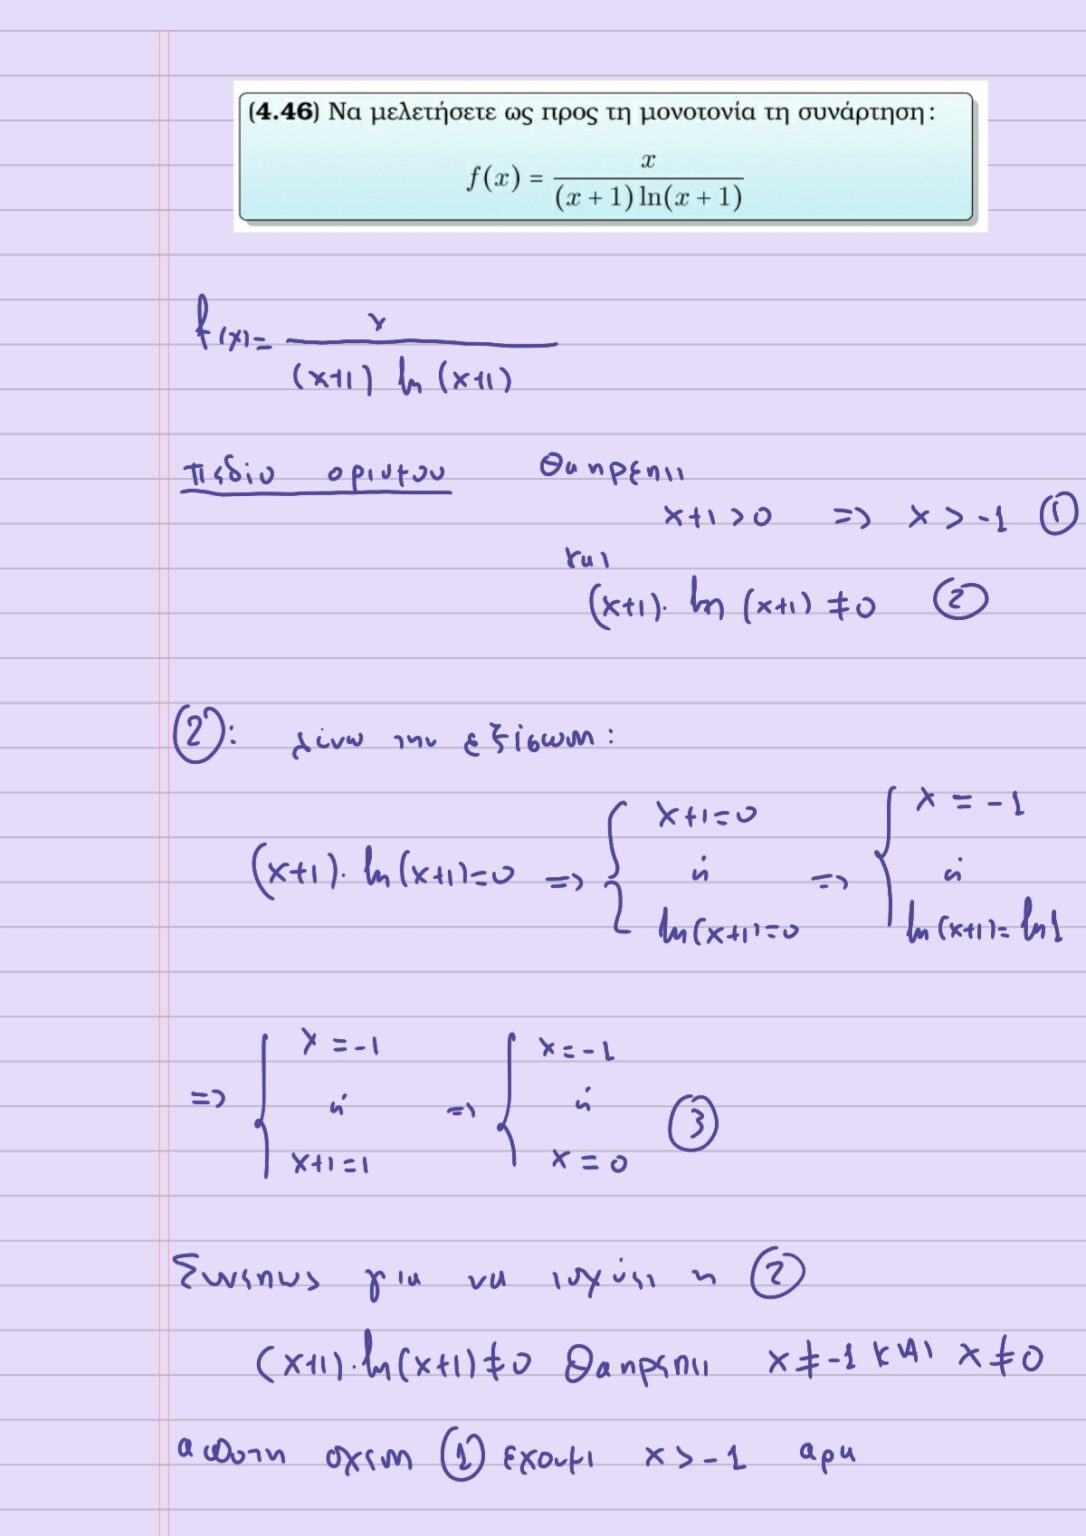 (4.46) Να μελετήσετε ως προς τη μονοτονία τη συνάρτηση:
f(x) = x / ((x + 1) ln(x + 1))
f(x) = x / ((x+1) ln (x+1))
πεδίο ορισμού θα πρέπει
x+1 > 0 => x > -1 ①
και
(x+1). ln (x+1) ≠ 0 ②
②: λύνω την εξίσωση:
(x+1). ln(x+1)=0 => { x+1=0 ή ln(x+1)=0 => { x = -1 ή ln(x+1)= ln1
=> { x = -1 ή x+1=1 => { x = -1 ή x = 0 ③
Συνεπώς για να ισχύει η ②
(x+1).ln(x+1)≠0 θα πρέπει x ≠ -1 ΚΑΙ x ≠ 0
από τη σχέση ① έχουμε x > -1 αρα